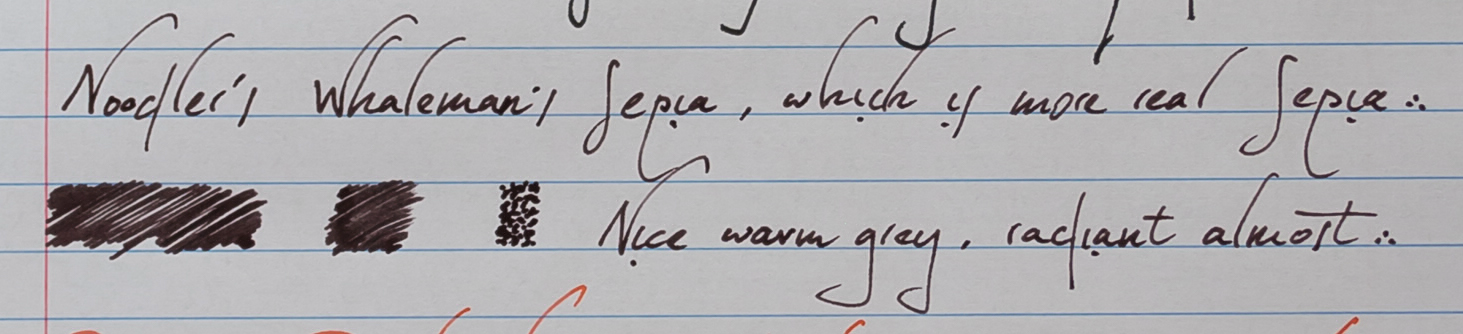 Noodler's Whaleman's Sepia, which is more real Sepia∴
Nice warm grey, radiant almost∴